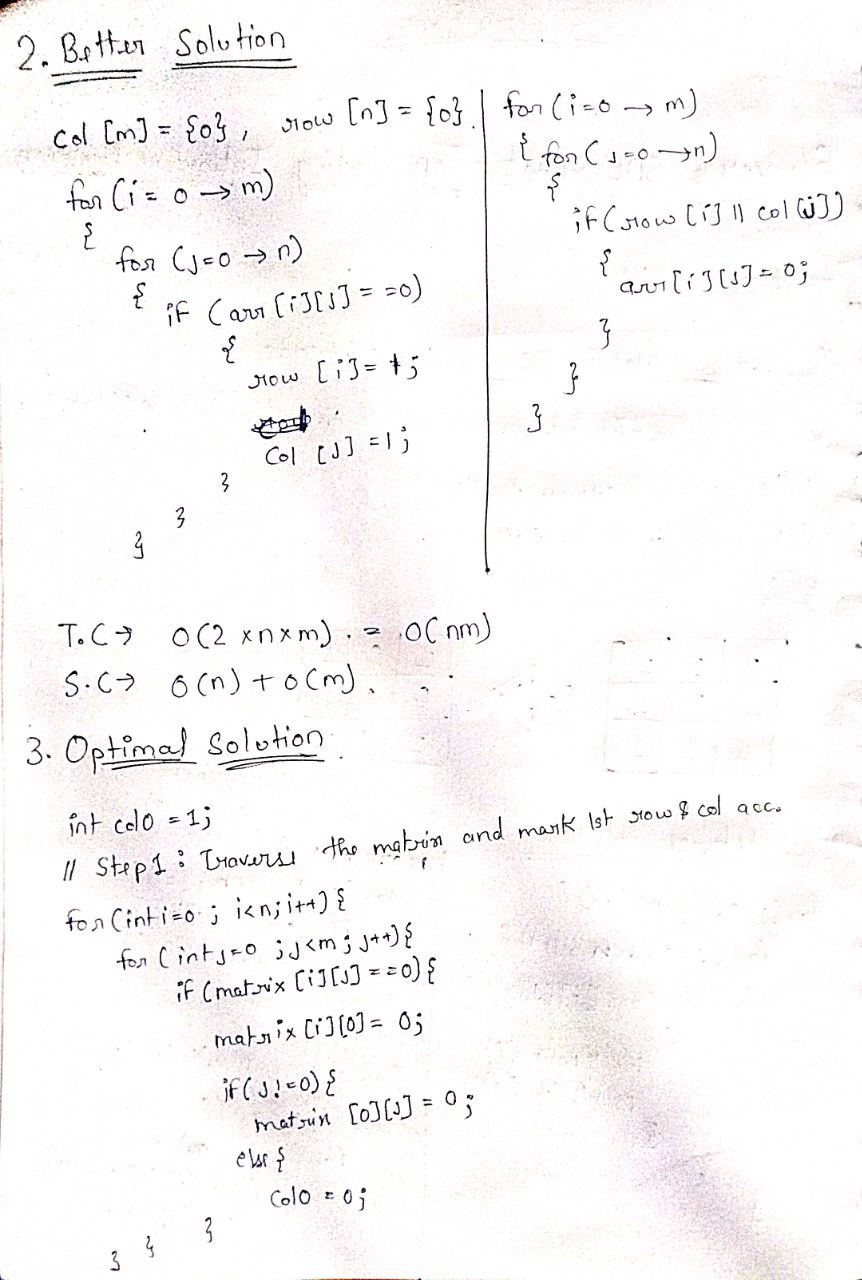 2. Better Solution
col [m] = {0}, row [n] = {0}.
for (i = 0 → m)
{
for (j=0 → n)
{ if (arr [i][j] = =0)
{
row [i] = 1;
Col [j] = 1;
}
}
}
for (i=0 → m)
{ for (j=0 → n)
{
if (row [i] || col [j])
{
arr[i][j] = 0;
}
}
}
T.C → O(2 x n x m) . = O(nm)
S.C → O(n) + O(m).
3. Optimal Solution.
int col0 = 1;
// Step 1 : Traverse the matrix and mark 1st row & col acc.
for (int i=0 ; i<n; i++) {
for (int j=0 ; j<m ; j++) {
if (matrix [i][j] = =0) {
matrix [i][0] = 0;
if (j != 0) {
matrix [0][j] = 0 ;
else {
Col0 = 0;
} } }